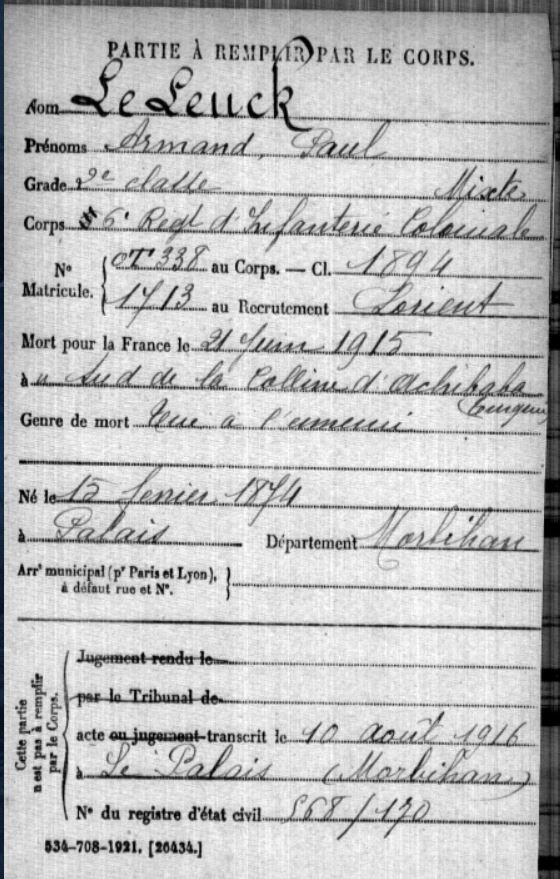 PARTIE À REMPLIR PAR LE CORPS.
Nom Le Leuck
Prénoms Armand, Paul
Grade 2e classe Mixte
Corps 6e Regt d'Infanterie Coloniale
No Matricule. { CT 338 au Corps. — Cl. 1894
1713 au Recrutement Lorient
Mort pour la France le 21 Juin 1915
à " Sud de la Colline d'Achibaba
Genre de mort Tué a l'ennemi
Né le 15 fevrier 1874
à Palais Département Morbihan
Arrt municipal (pr Paris et Lyon), à défaut rue et No. }
Cette partie n'est pas à remplir par le Corps.
Jugement rendu le
par le Tribunal de
acte ou jugement transcrit le 10 août 1916
à Le Palais (Morbihan)
No du registre d'état civil 568/170
534-708-1921. [26434.]